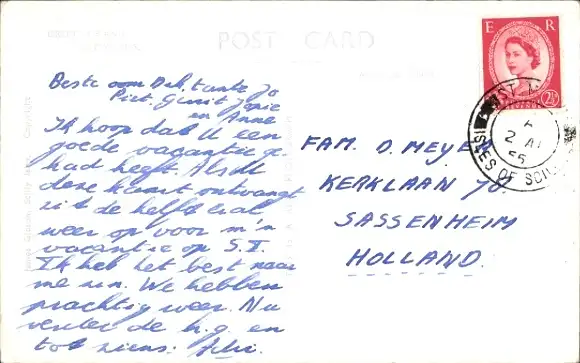 POST CARD
E R
2½
ISLES OF SCILLY
2 AU
Beste oom Dek, tante Jo
Piet, Gerrit Jopie
en Anne
Ik hoop dat U een
goede vacantie ge-
had heeft. Als U
deze kaart ontvangt
zit de helft er al
weer op voor m'n
vacantie op S.I.
Ik heb het best naar
me zin. We hebben
prachtig weer. Nu
verder de h.g. en
tot ziens:
FAM. D. MEYER
KERKLAAN 70.
SASSENHEIM
HOLLAND.